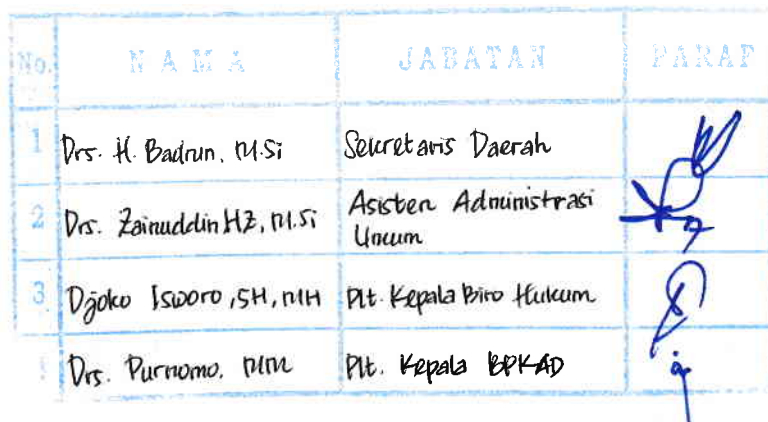 No. N A M A JABATAN PARAF
1 Drs. H. Badrun, M.Si Sekretaris Daerah
2 Drs. Zainuddin HZ, M.Si Asisten Administrasi
Umum
3 Djoko Isworo, SH, MH Plt. Kepala Biro Hukum
Drs. Purnomo, MM Plt. Kepala BPKAD